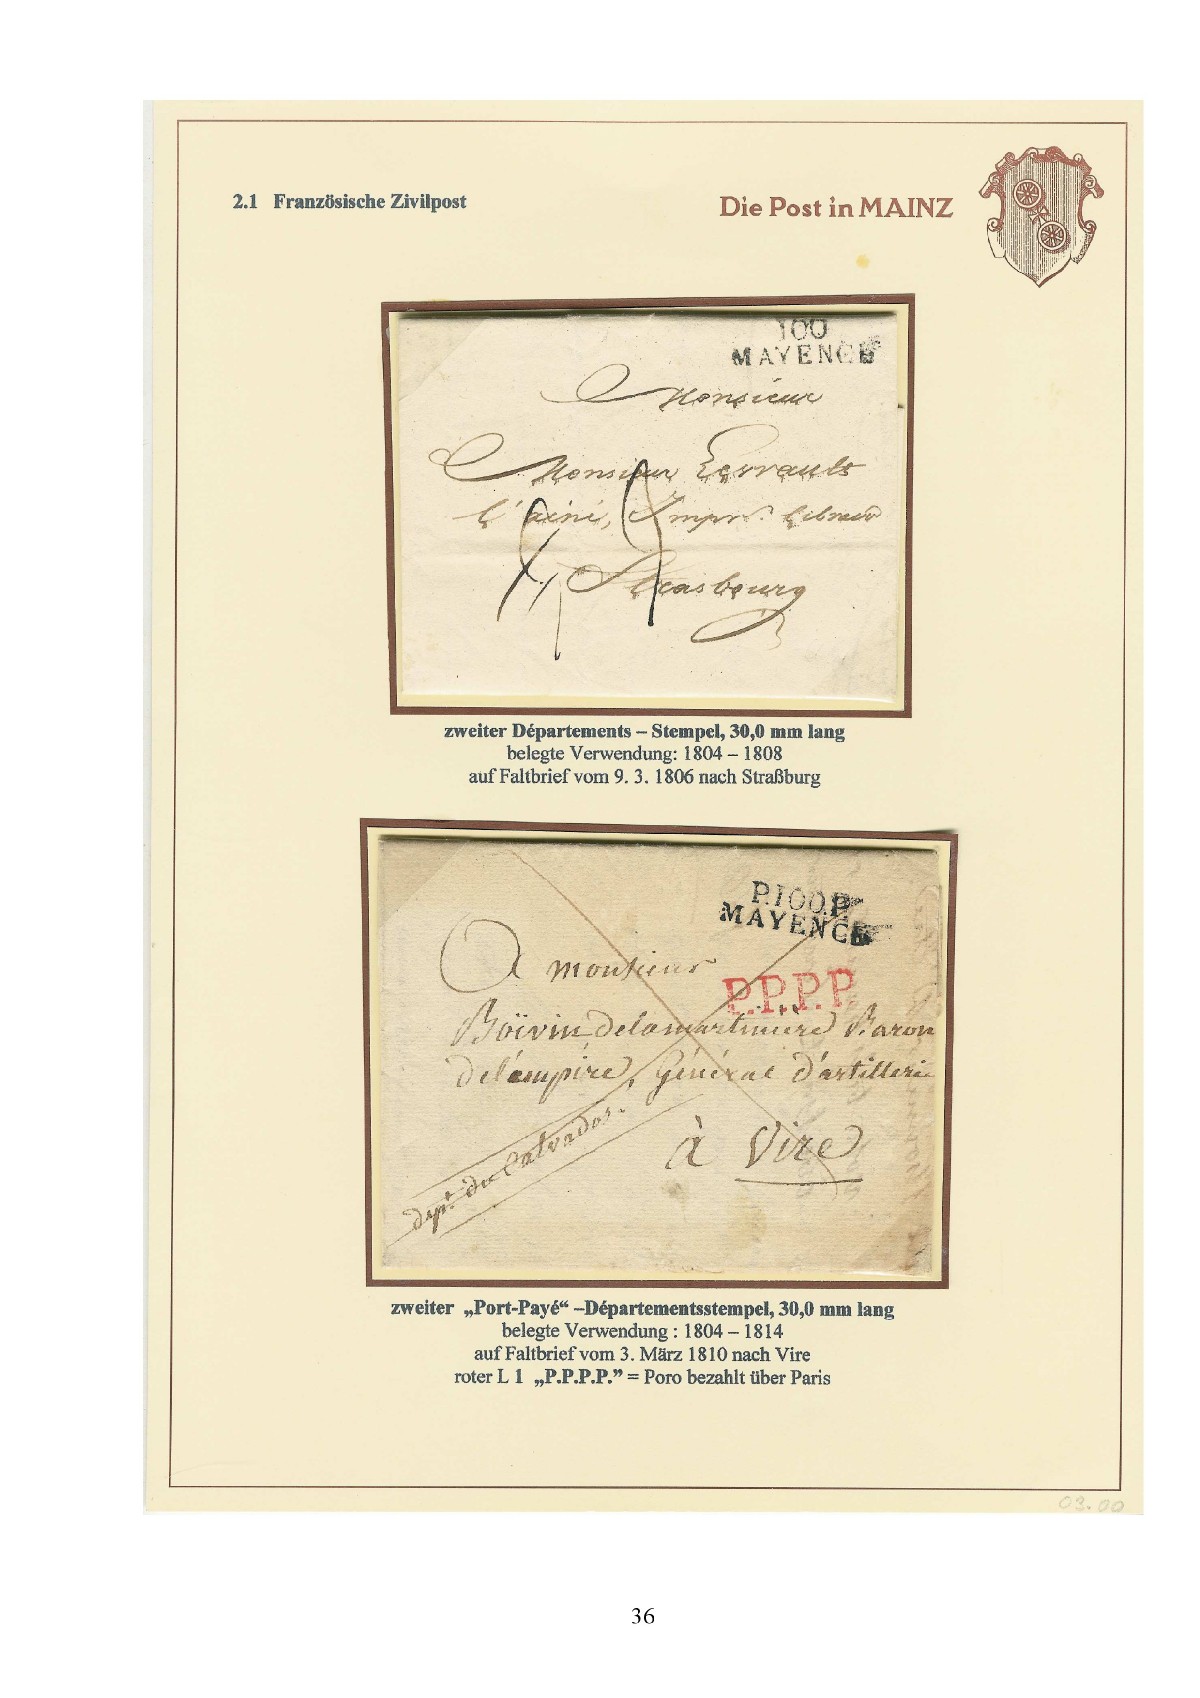 2.1 Französische Zivilpost
Die Post in MAINZ
100
MAYENCE
Monsieur
Monsieur
l'ainé, Impr.
Strasbourg
zweiter Départements – Stempel, 30,0 mm lang
belegte Verwendung: 1804 – 1808
auf Faltbrief vom 9. 3. 1806 nach Straßburg
P.100.P.
MAYENCE
A monsieur
P.P.P.P
Boïvin delamartiniere Baron
del'empire, Général d'artillerie
à Vire
dept. du Calvados.
zweiter „Port-Payé“ –Départementsstempel, 30,0 mm lang
belegte Verwendung : 1804 – 1814
auf Faltbrief vom 3. März 1810 nach Vire
roter L 1 „P.P.P.P.” = Poro bezahlt über Paris
03.00
36